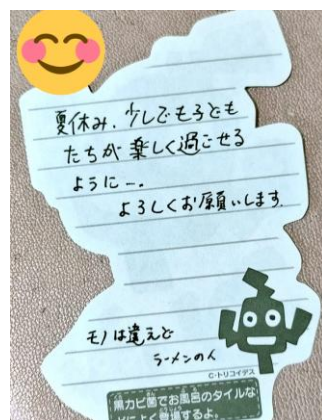 夏休み、少しでも子ども
たちが楽しく過ごせる
ように―。
よろしくお願いします。
モノは違えど
ラーメンの人
©・トリコイデス
黒カビ菌でお風呂のタイルな
どによく登場するよ。